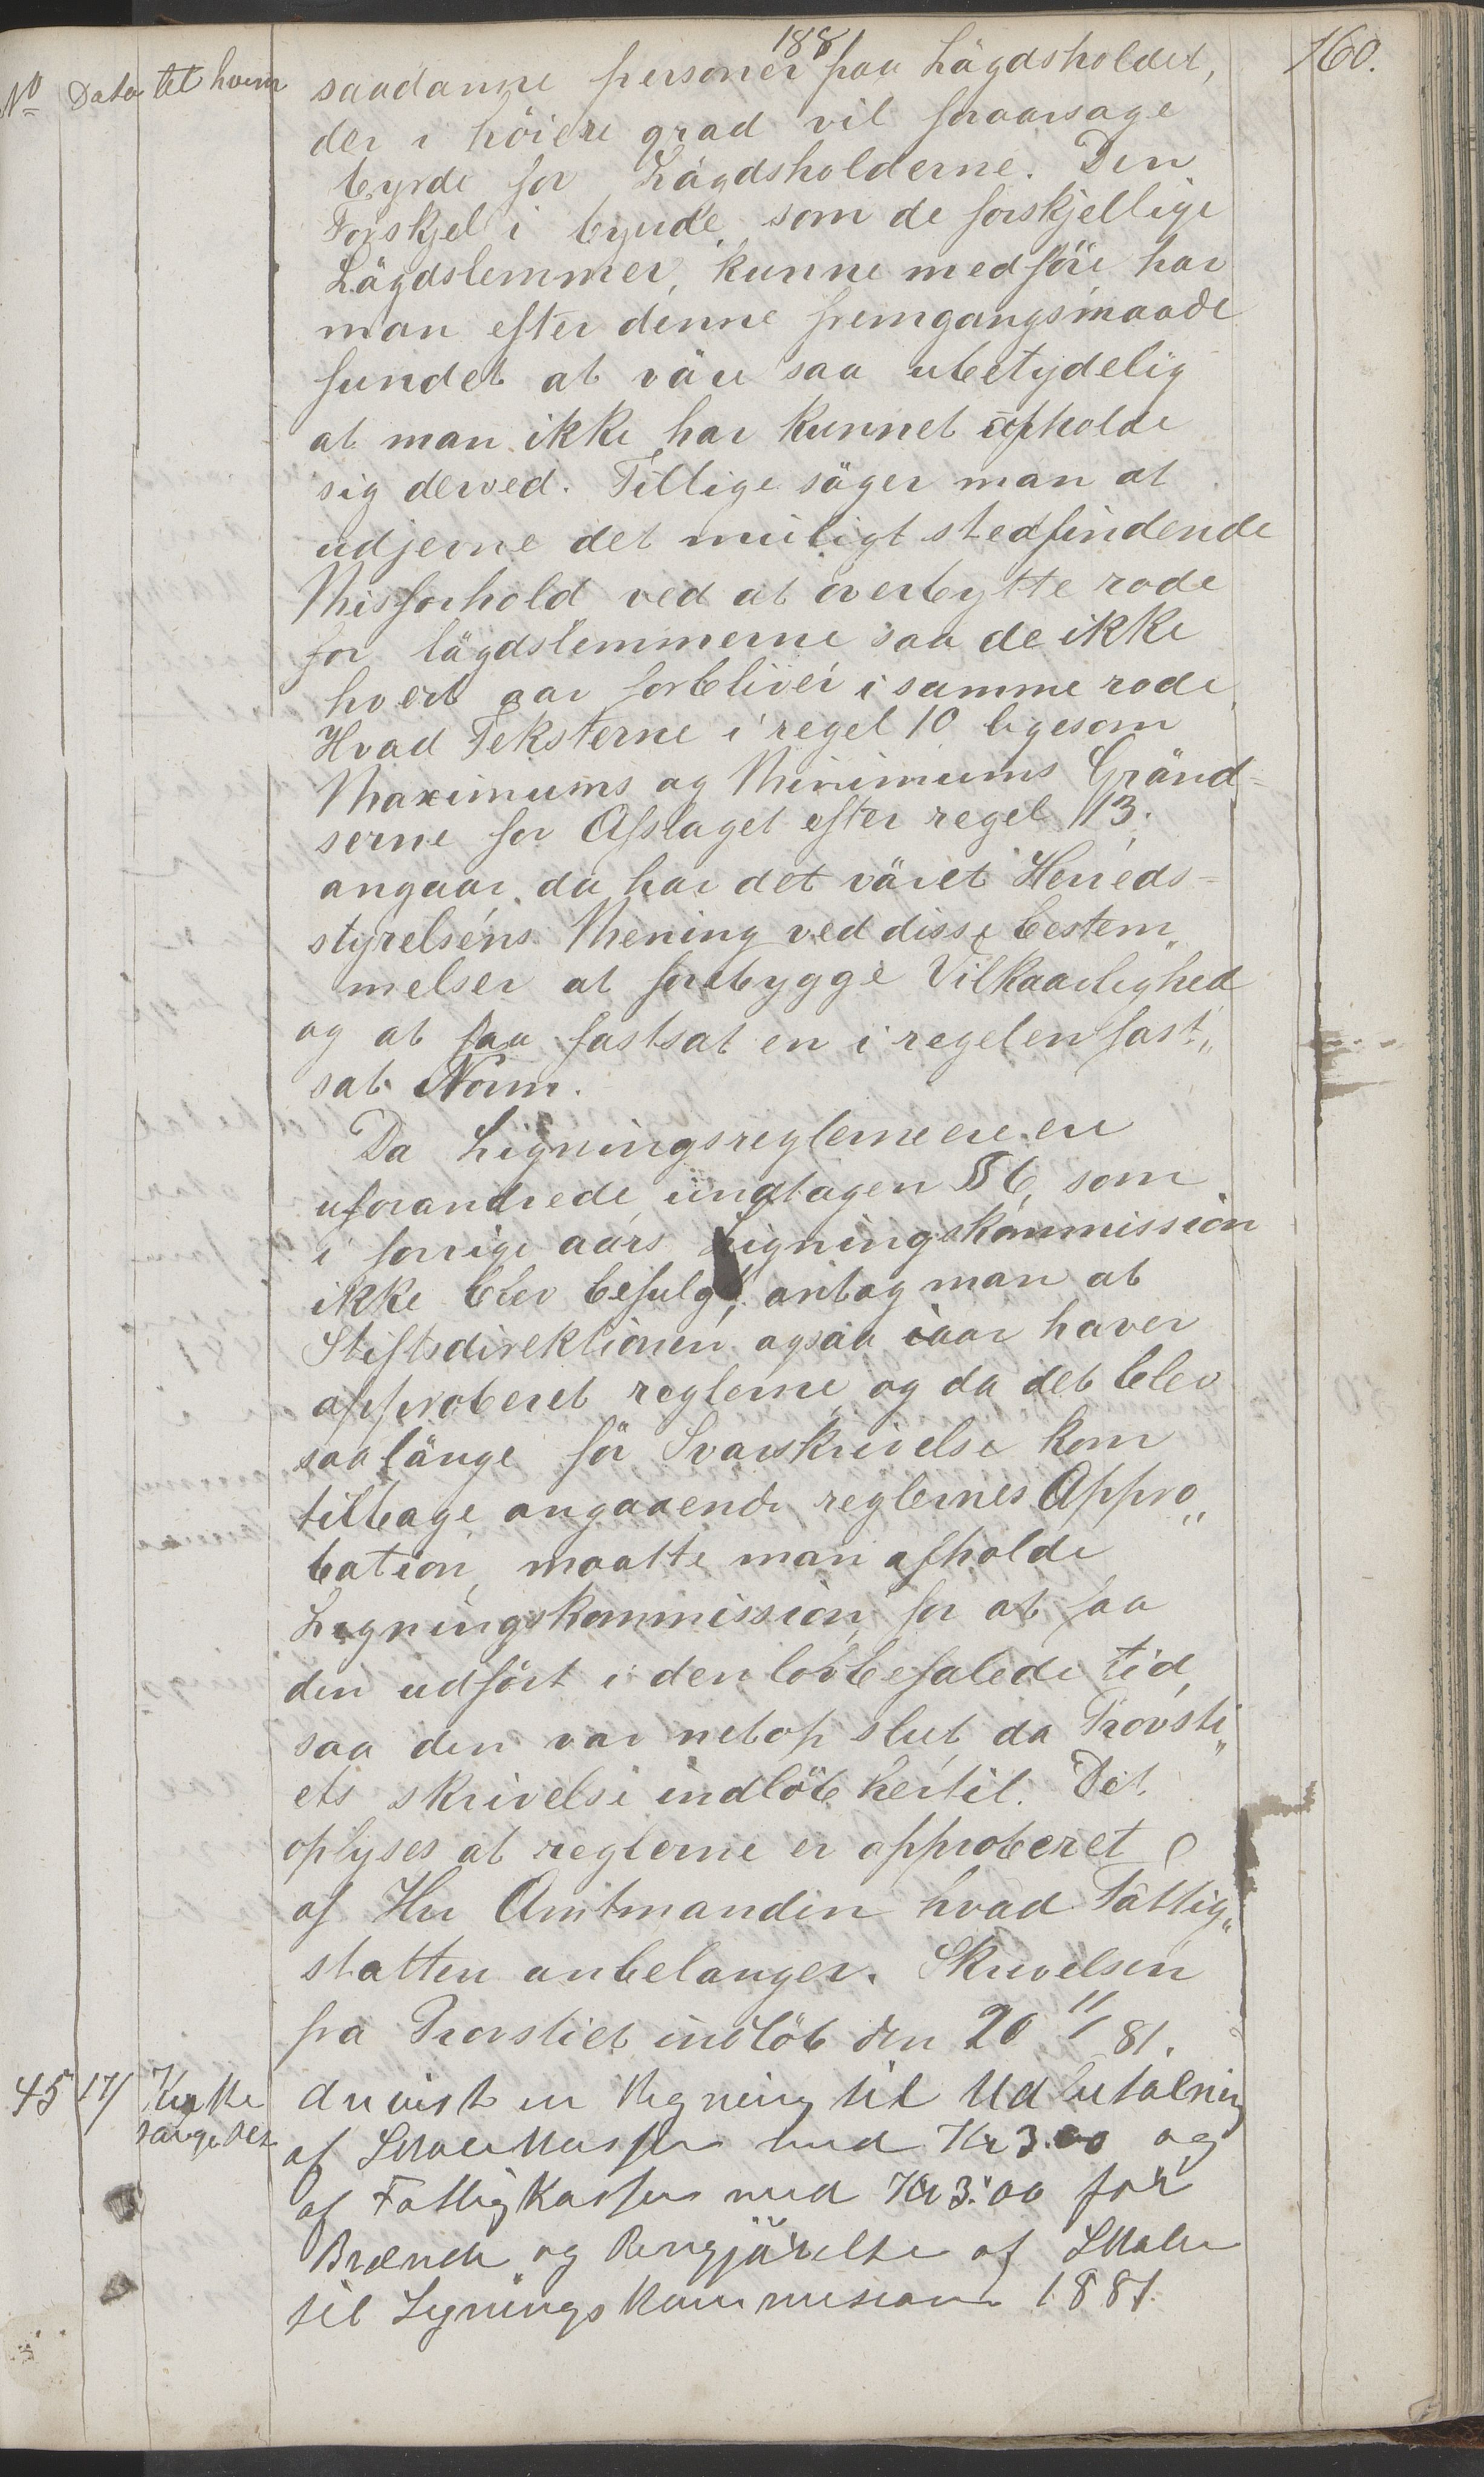 188
160.
No Dato til hvem
saadanne personer paa Lägdsholdet,
der i höiere grad vil foraarsage
byrde for Lägdsholderne. Den
Forskjel i byrde, som de forskjellige
Lägdslemmer, kunne medföre har
man efter denne fremgangsmaade
fundet at väre saa ubetydelig
at man ikke har kunnet opholde
sig derved. Tillige söger man at
udjerne det muligt stedfindende
Misforhold ved at overbytte rode
for lägdslemmerne saa de ikke
hvert aar forbliver i samme rode.
Hvad Teksterne i regel 10 ligesom
Maximums og Minimums Gränd-
serne for Afslaget efter regel 13.
angaar, da har det väret Herreds-
styrelsens Mening ved disse bestem„
melser at forebygge Vilkaarlighed
og at faa fastsat en i regelen fast„
sat Norm.
Da Ligningsreglerne ere
uforandrede undtagen § 6, som
i forrige aars Ligningskommission
ikke blev befulgt, antog man at
Stiftsdirektionen ogsaa iaar haver
approberet reglerne, og da det blev
saalänge för Svarskrivelse kom
tilbage angaaende reglernes Appro„
bation, maatte man afholde
Ligningskommission for at faa
den udfört i den lovbefalede tid,
saa den var netop slut da Provsti„
ets skrivelse indlöb hertil. Det
oplyses at reglerne er approberet
af Hr Amtmanden hvad Fattig„
skatten anbelanger. Skrivelsen
fra Provstiet indlöb den 20 11/81.
45 17/ Kirke
sanger
anvist en Regning til Udbetalning
af Skolekassen med Kr 3.00 og
af Fattigkassen med Kr 3.00 for
Brænde og Rengjörelse af Skolen
til Ligningskommission 1881.